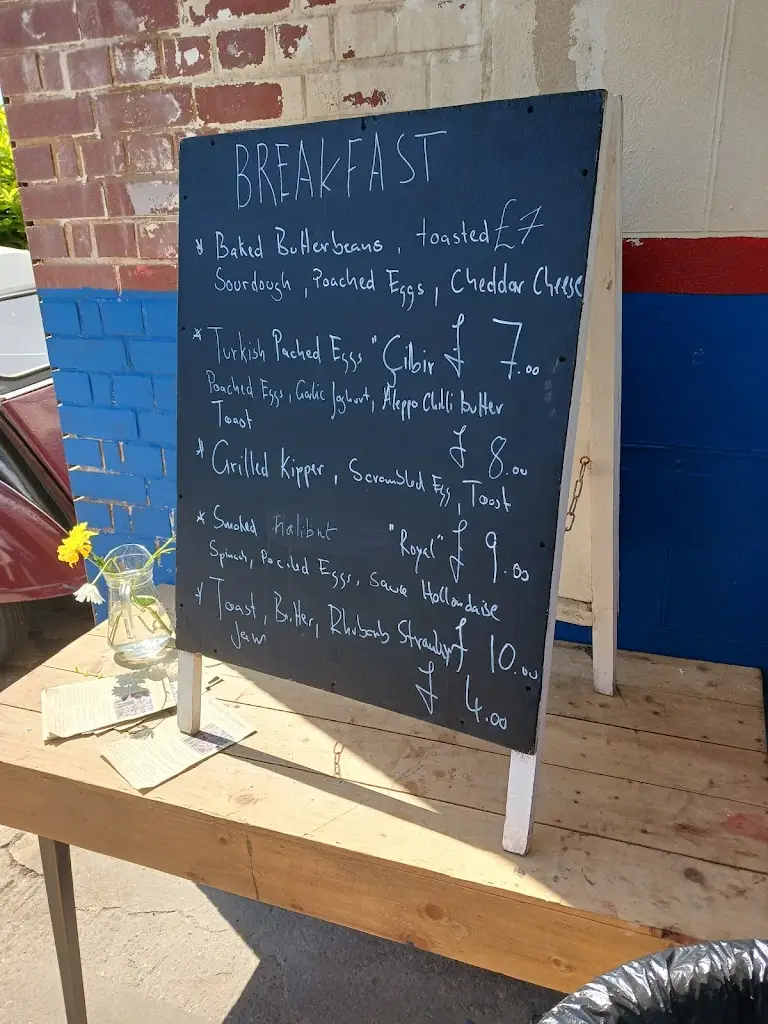 BREAKFAST
* Baked Butterbeans, toasted £7
Sourdough, Poached Eggs, Cheddar Cheese
* Turkish Pached Eggs "Çilbir £ 7.00
Poached Eggs, Garlic Joghurt, Aleppo Chilli butter
Toast £ 8.00
* Grilled Kipper, Scrambled Egg, Toast
* Smoked Halibut "Royal" £ 9.00
Spinach, Poached Eggs, Sauce Hollandaise
* Toast, Butter, Rhubarb Strawberry £ 10.00
jam £ 4.00